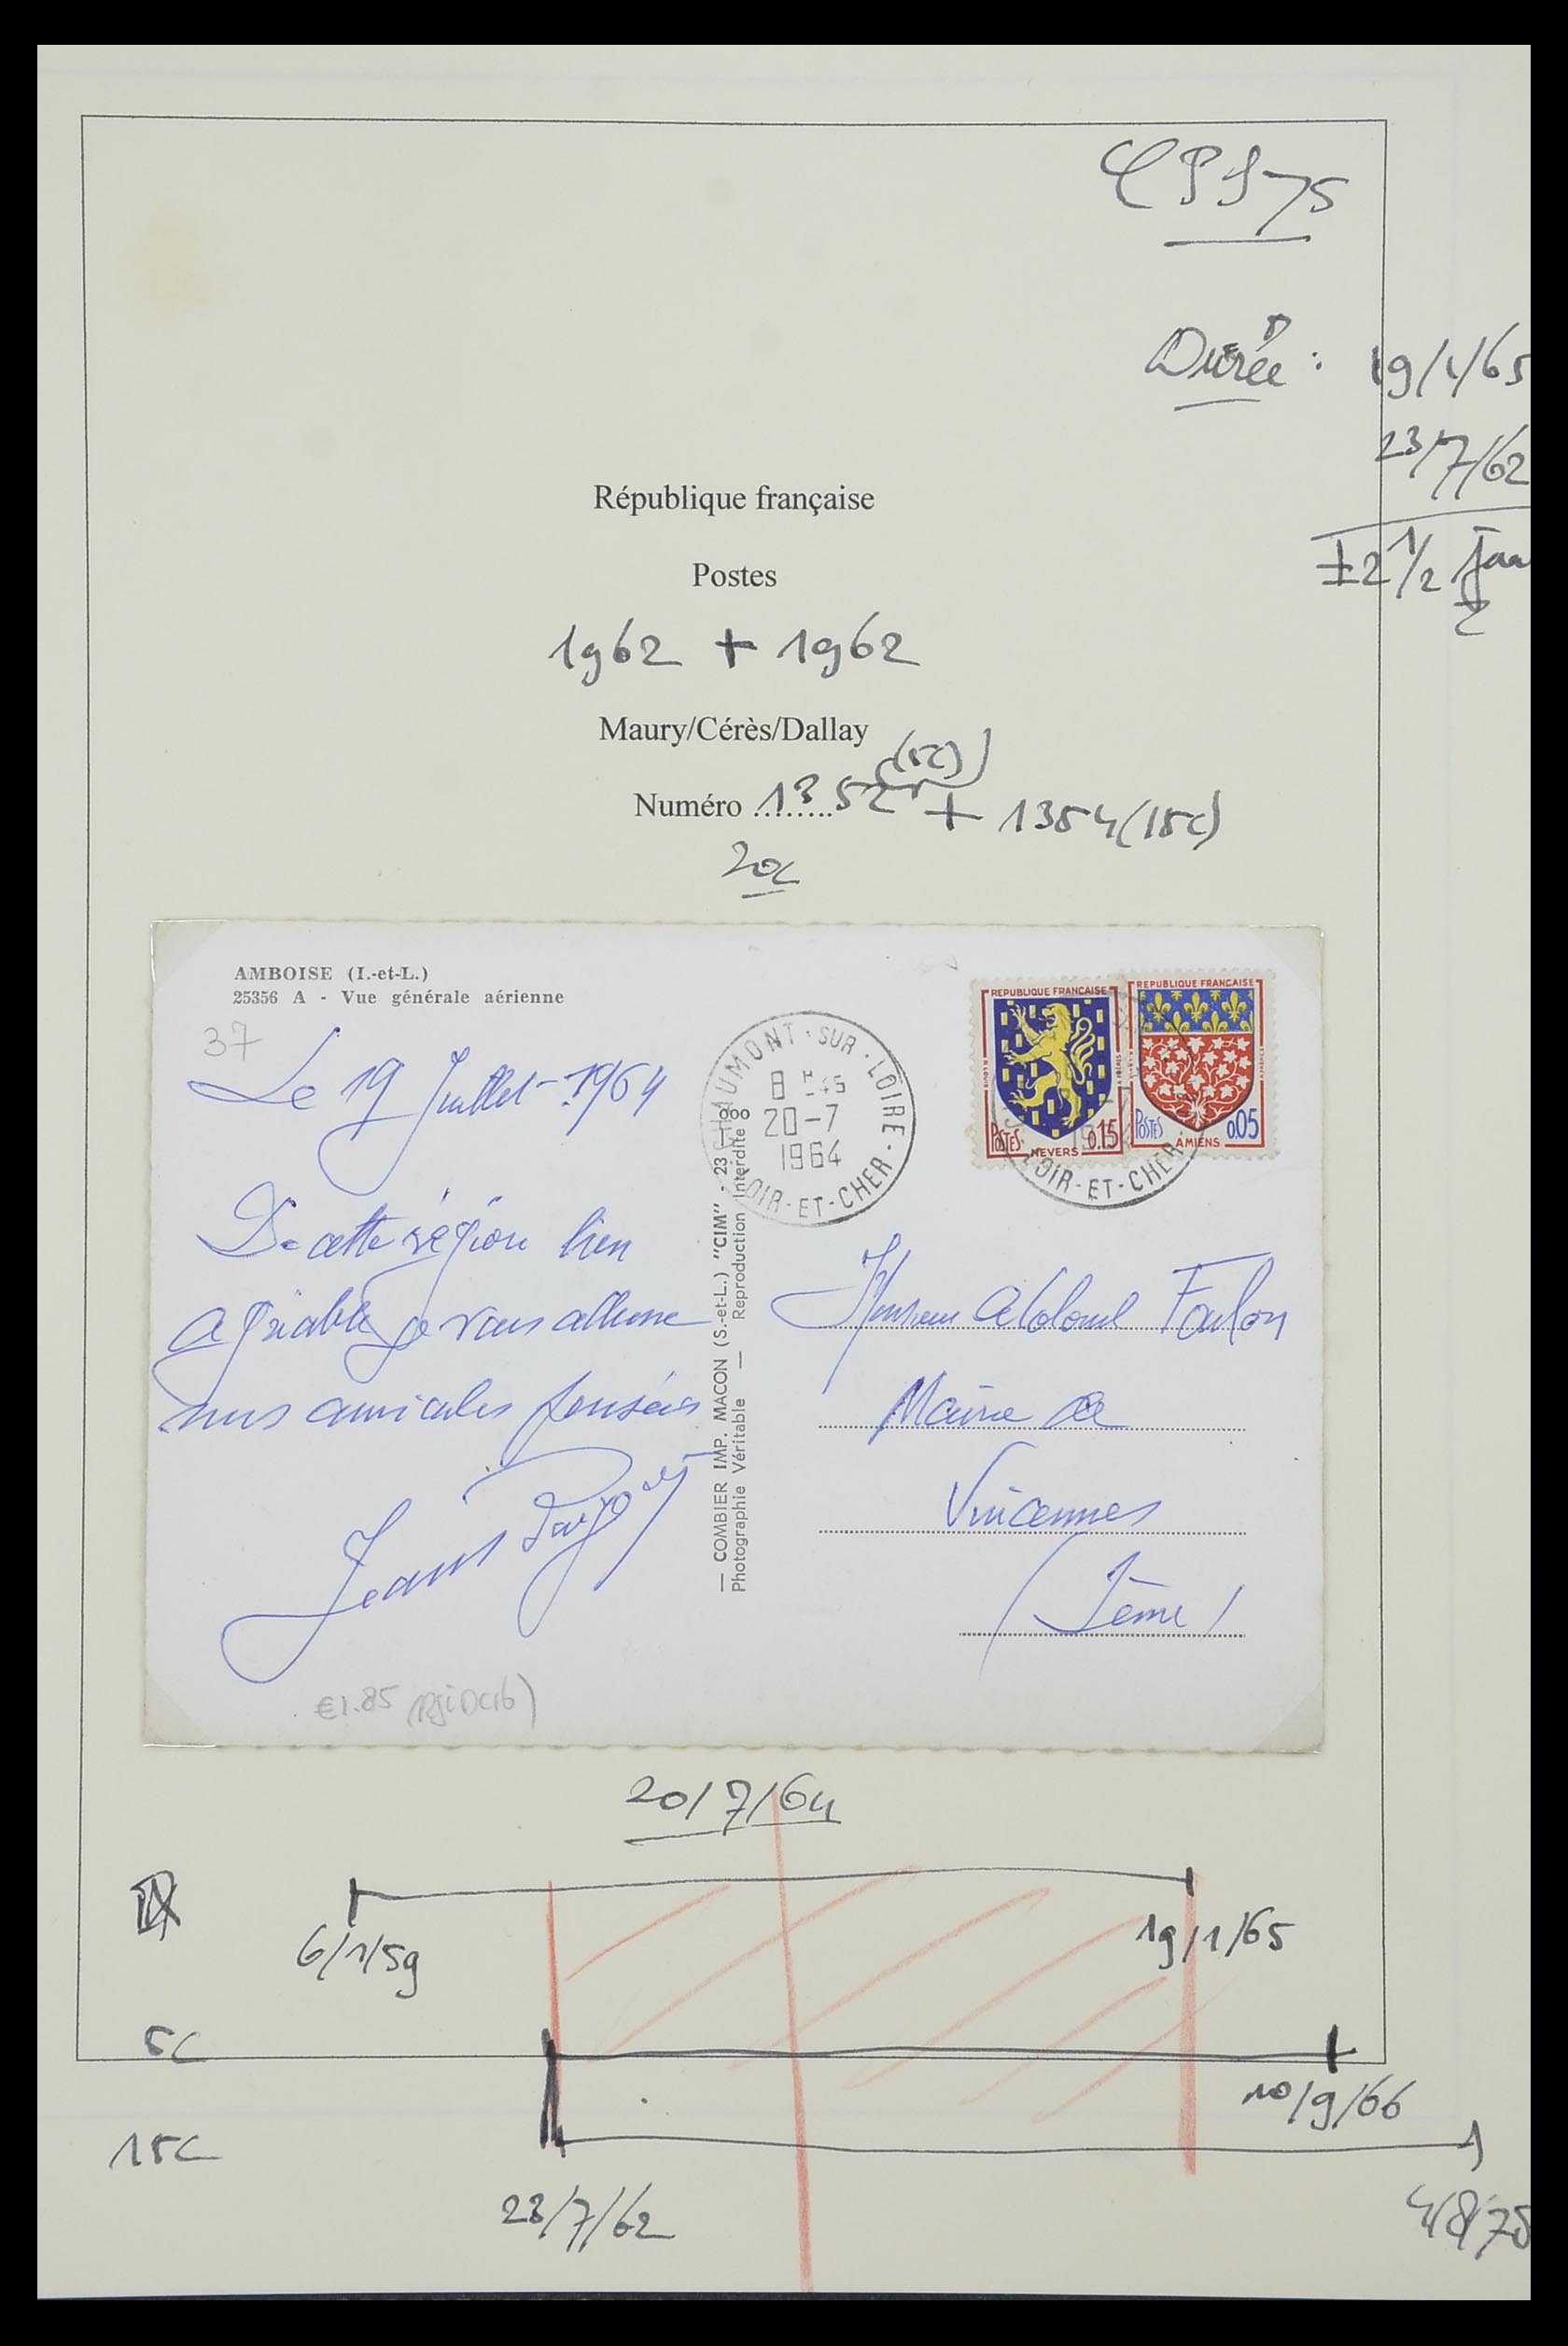 CPS 75
Durée : 19/1/65
23/7/62
± 2 1/2 jaar
République française
Postes
1962 + 1962
Maury/Cérès/Dallay
(5c)
Numéro ........ 1352 + 1354 (15c)
20c
AMBOISE (I.-et-L.)
25356 A - Vue générale aérienne
37
Le 19 Juillet 1964
De cette région bien
agréable je vous adresse
mes amicales pensées
CHAUMONT-SUR-LOIRE
8 H 45
20-7
1964
LOIR-ET-CHER
REPUBLIQUE FRANÇAISE
POSTES 0.15
NEVERS
REPUBLIQUE FRANÇAISE
POSTES 0.05
AMIENS
LOIR-ET-CHER
— COMBIER IMP. MACON (S.-et-L.) "CIM" - 23 - 1-000
Photographie Véritable — Reproduction Interdite
Monsieur le Colonel Foulon
Mairie de
Vincennes
(Seine)
€1.85
20/7/64
6/1/59
19/1/65
5c
10/9/66
15c
23/7/62